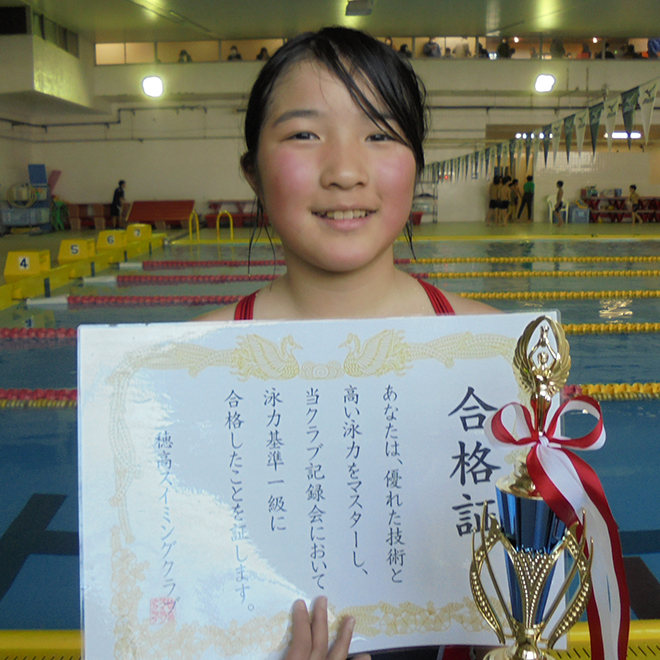 合格証
あなたは、優れた技術と
高い泳力をマスターし、
当クラブ記録会において
泳力基準 一級に
合格したことを証します。
穂高スイミングクラブ
4
5
6